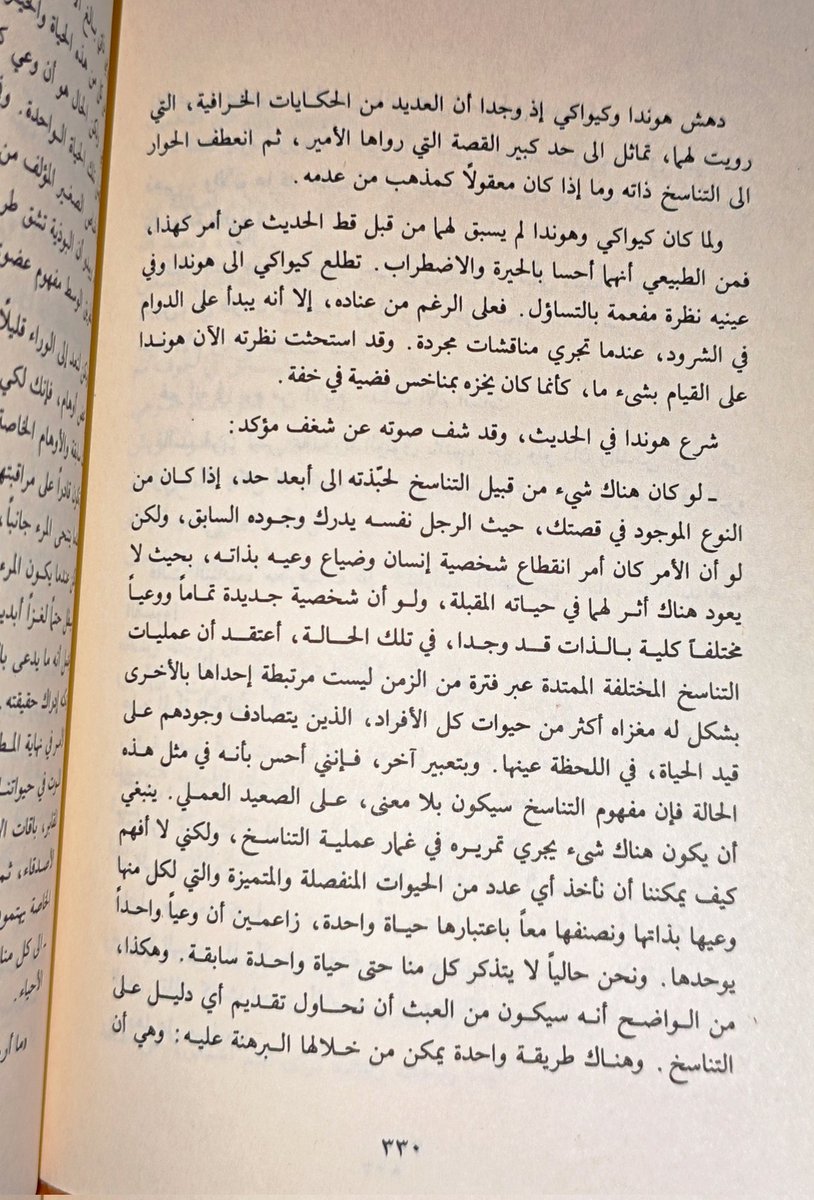 دهش هوندا وكيواكي إذ وجدا أن العديد من الحكايات الخرافية، التي
رويت لهما، تماثل الى حد كبير القصة التي رواها الأمير، ثم انعطف الحوار
الى التناسخ ذاته وما إذا كان معقولاً كمذهب من عدمه.
ولما كان كيواكي وهوندا لم يسبق لهما من قبل قط الحديث عن أمر كهذا،
فمن الطبيعي أنهما أحسا بالحيرة والاضطراب. تطلع كيواكي الى هوندا وفي
عينيه نظرة مفعمة بالتساؤل. فعلى الرغم من عناده، إلا أنه يبدأ على الدوام
في الشرود، عندما تجري مناقشات مجردة. وقد استحثت نظرته الآن هوندا
على القيام بشيء ما، كأنما كان يخزه بمناخس فضية في خفة.
شرع هوندا في الحديث، وقد شف صوته عن شغف مؤكد:
ـ لو كان هناك شيء من قبيل التناسخ لحبّذته الى أبعد حد، إذا كان من
النوع الموجود في قصتك، حيث الرجل نفسه يدرك وجوده السابق، ولكن
لو أن الأمر كان أمر انقطاع شخصية إنسان وضياع وعيه بذاته، بحيث لا
يعود هناك أثر لهما في حياته المقبلة، ولو أن شخصية جديدة تماماً ووعياً
مختلفاً كلية بالذات قد وجدا، في تلك الحالة، أعتقد أن عمليات
التناسخ المختلفة الممتدة عبر فترة من الزمن ليست مرتبطة إحداها بالأخرى
بشكل له مغزاه أكثر من حيوات كل الأفراد، الذين يتصادف وجودهم على
قيد الحياة، في اللحظة عينها. وبتعبير آخر، فإنني أحس بأنه في مثل هذه
الحالة فإن مفهوم التناسخ سيكون بلا معنى، على الصعيد العملي. ينبغي
أن يكون هناك شىء يجري تمريره في غمار عملية التناسخ، ولكني لا أفهم
كيف يمكننا أن نأخذ أي عدد من الحيوات المنفصلة والمتميزة والتي لكل منها
وعيها بذاتها ونصنفها معاً باعتبارها حياة واحدة، زاعمين أن وعياً واحداً
يوحدها. ونحن حالياً لا يتذكر كل منا حتى حياة واحدة سابقة. وهكذا،
من الواضح أنه سيكون من العبث أن نحاول تقديم أي دليل على
التناسخ. وهناك طريقة واحدة يمكن من خلالها البرهنة عليه: وهي أن
٣٣٠